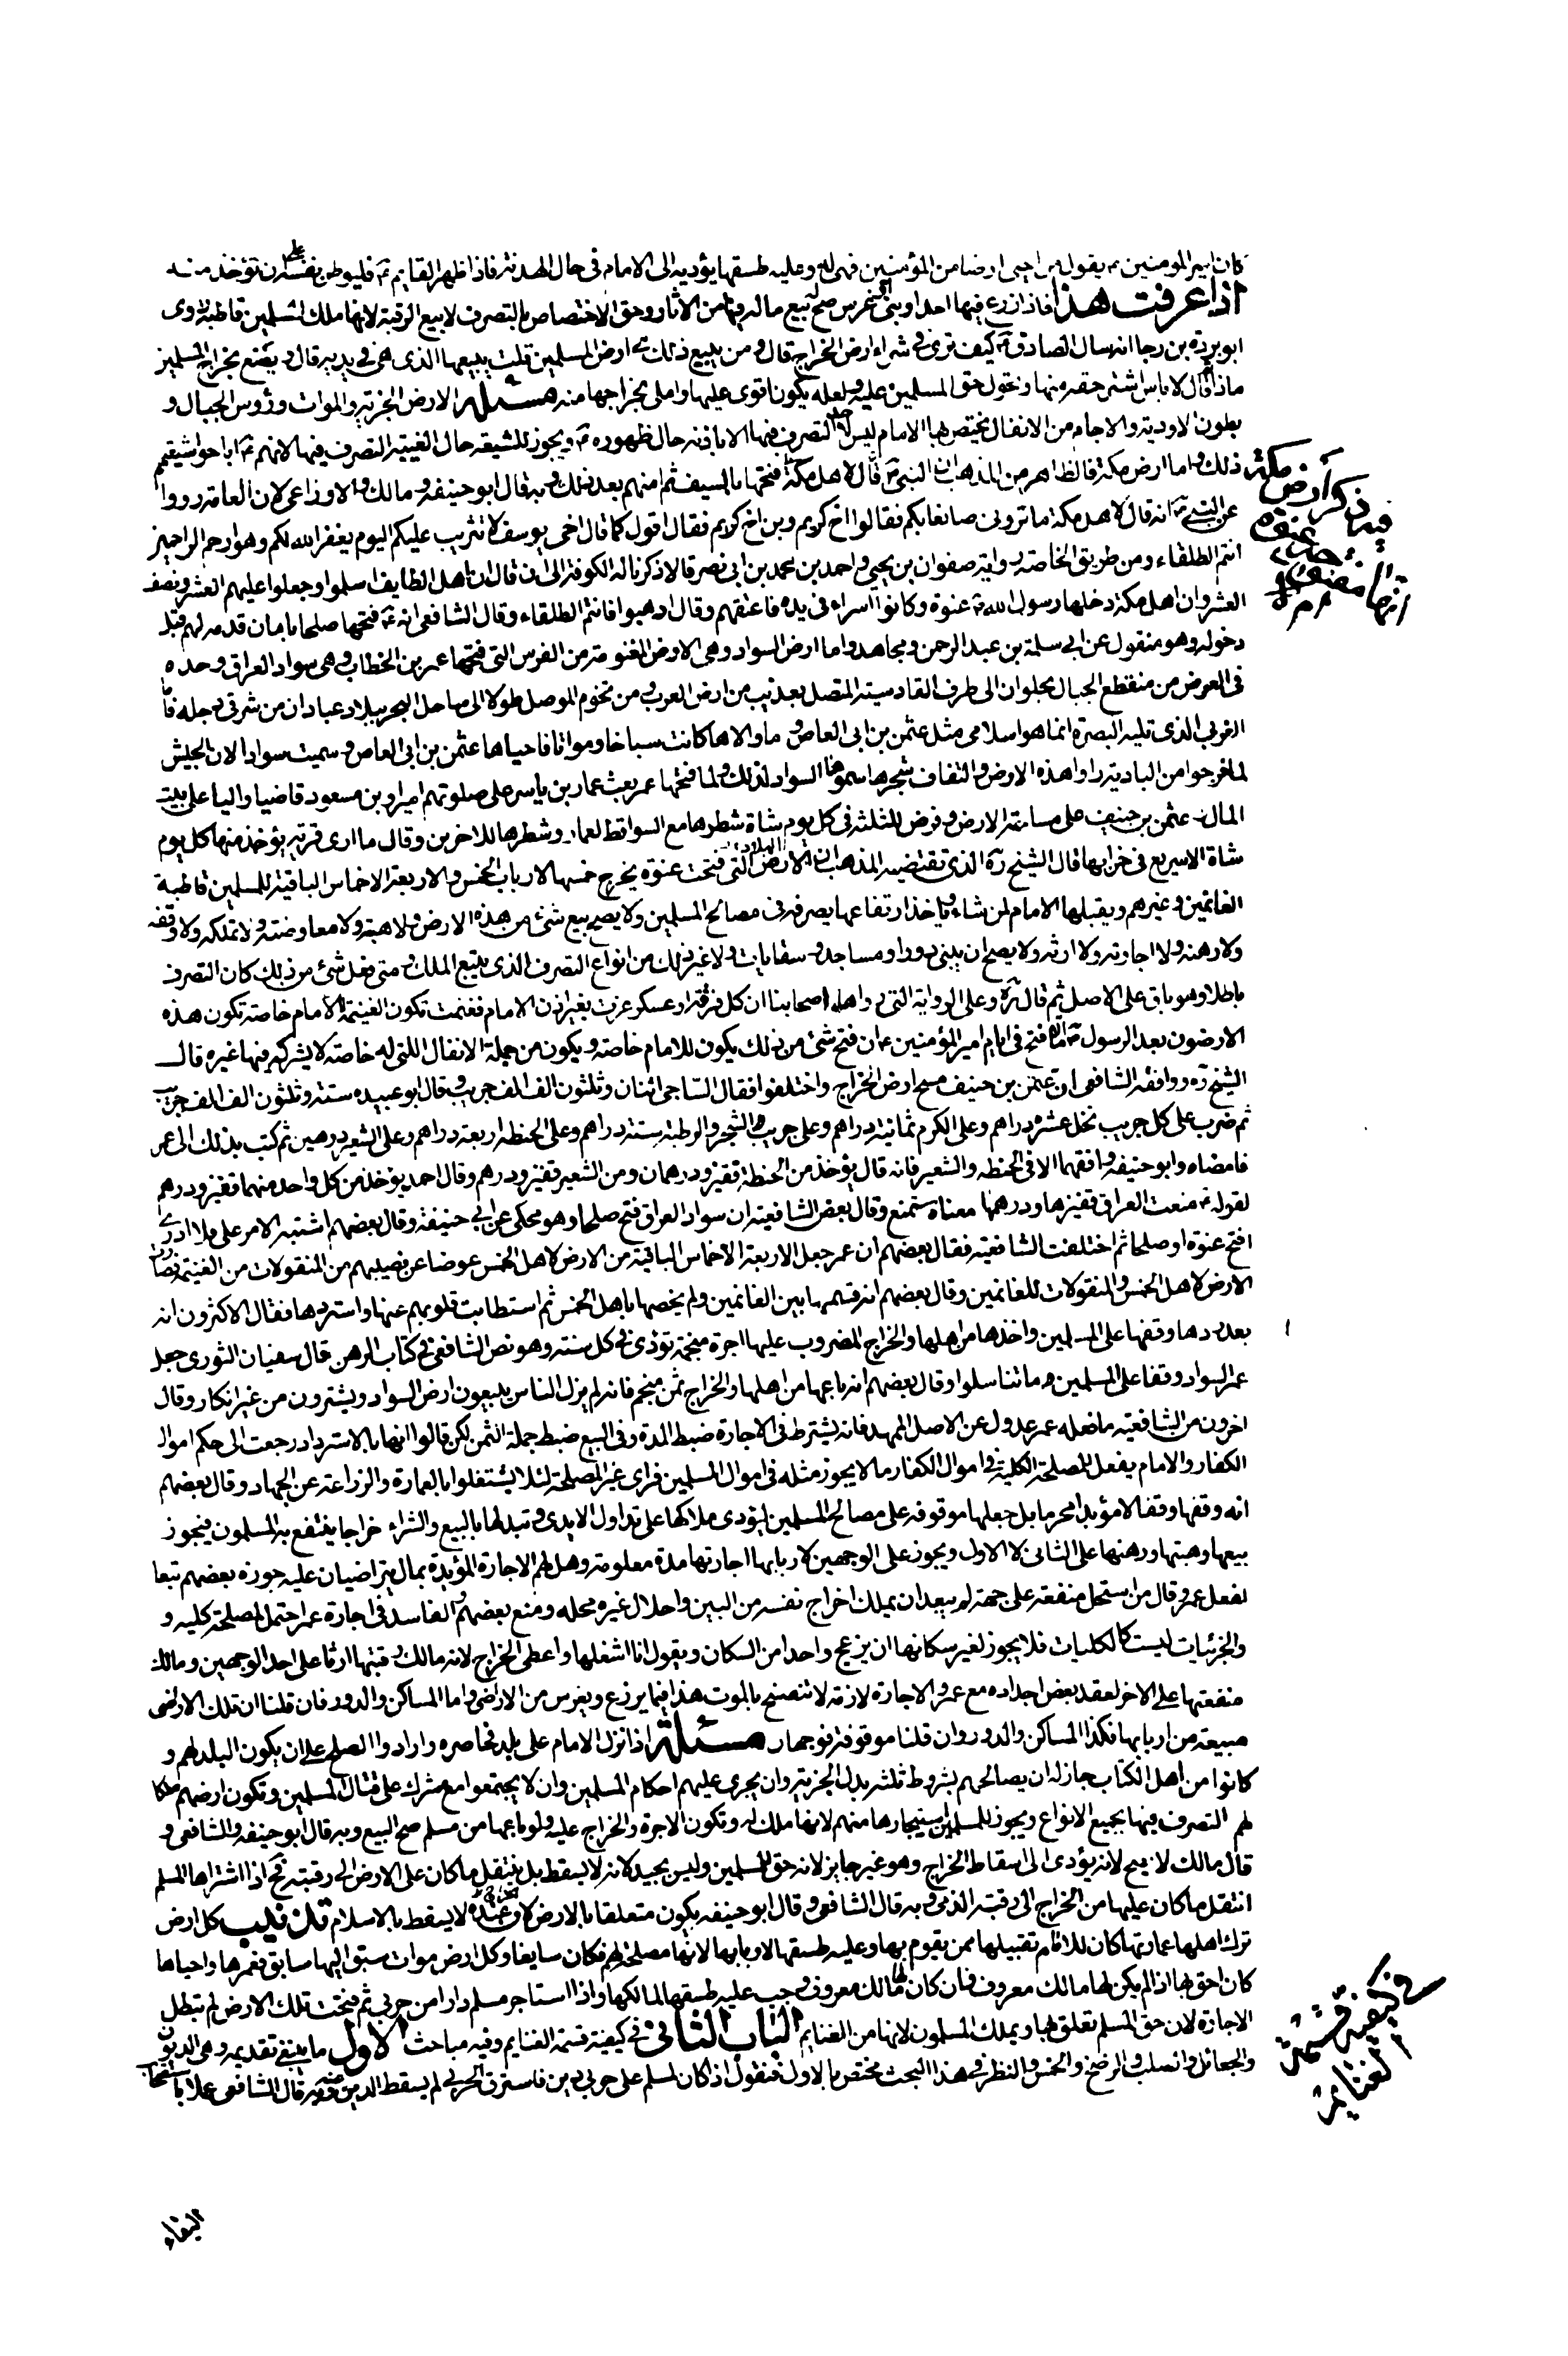 كان امير المومنين ع يقول من احيى ارضا من المؤمنين فهى له وعليه طسقها يؤديه الى الامام فى حال الهدنة فاذا ظهر القايم ع فليوطن نفسه على ان تؤخذ منه
اذا عرفت هذا فاذا زرع فيها احد او بنى او غرس صح له بيع ماله فيها من الاثار وحق الاختصاص بالتصرف لا بيع الرقبة لانها ملك للمسلمين قاطبة روى
ابو بردة بن رجا انه سال الصادق ع كيف ترى فى شراء ارض الخراج قال ومن يبيع ذلك هى ارض المسلمين قلت يبيعها الذى هى فى يديه قال ويصنع بخراج المسلمين
ماذا ثم قال لا باس اشترى حقه منها وتحول حق المسلمين عليه ولعله يكون اقوى عليها واملى بخراجها منه مسئلة الارض الخربة والموات ورؤس الجبال و
بطون الاودية والاجام من الانفال يختص بها الامام ليس لاحد التصرف فيها الا باذنه حال ظهوره ع ويجوز للشيعة حال الغيبة التصرف فيها لانهم ع اباحوا شيعتهم
ذلك واما ارض مكة فالظاهر من المذهب ان النبى ص قال لاهل مكة فتحها بالسيف ثم امنهم بعد ذلك وبه قال ابو حنيفه ومالك والاوزاعى لان العامة رووا
عن النبى ص انه قال لاهل مكة ما ترونى صانعا بكم فقالوا اخ كريم وبن اخ كريم فقال اقول كما قال اخى يوسف لا تثريب عليكم اليوم يغفر الله لكم وهو ارحم الراحمين
انتم الطلقاء ومن طريق الخاصة رواية صفوان بن يحيى واحمد بن محمد بن ابى نصر قالا ذكرنا له الكوفة الى ان قال ان اهل الطايف اسلموا وجعلوا عليهم العشر ونصف
العشر وان اهل مكة دخلها رسول الله ص عنوة وكانوا اسراء فى يده فاعتقهم وقال اذهبوا فانتم الطلقاء وقال الشافعى انه ع فتحها صلحا بامان قدمه لهم قبل
دخوله وهو منقول عن ابى سلمة بن عبد الرحمن ومجاهد واما ارض السواد وهى الارض المغنومة من الفرس التى فتحها عمر بن الخطاب وهى سواد العراق وحده
فى العرض من منقطع الجبال بحلوان الى طرف القادسية المتصل بعذيب من ارض العرب ومن تخوم الموصل طولا الى ساحل البحر ببلاد عبادان من شرقى دجله فاما
الغربى الذى تليه البصرة انما هو اسلامى مثل عثمن بن ابى العاص وما والاها كانت سباخا ومواتا فاحياها عثمن بن ابى العاص وسميت سوادا لان الجيش
لما خرجوا من البادية راوا هذه الارض والتفاف شجرها سموها السواد لذلك ولما فتحها عمر بعث عمار بن ياسر على صلوتهم اميرا وبن مسعود قاضيا واليا على بيت
المال وعثمن بن حنيف على مساحة الارض وفرض للثلثة فى كل يوم شاة شطرها مع السواقط لعمار وشطرها للاخرين وقال ما ارى قرية يؤخذ منها كل يوم
شاة الا سريع فى خرابها قال الشيخ ره الذى تقتضيه المذهب ان الارض التى فتحت عنوة يخرج خمسها لارباب الخمس والاربعة الاخماس الباقية للمسلمين قاطبة
الغانمين وغيرهم ويقبلها الامام لمن شاء وياخذ ارتفاعها يصرفه فى مصالح المسلمين ولا يصح بيع شئ من هذه الارض ولا هبته ولا معاوضته ولا تملكه ولا وقفه
ولا رهنه ولا اجارته ولا ارثه ولا يصح ان يبنى دورا ومساجد وسقايات ولا غير ذلك من انواع التصرف الذى يتبع الملك ومتى فعل شئ من ذلك كان التصرف
باطلا وهو باق على الاصل ثم قال ره وعلى الرواية التى رواها اصحابنا ان كل فرقة او عسكر غزت بغير اذن الامام فغنمت تكون الغنيمة للامام خاصة تكون هذه
الارضون بعد الرسول ص الا ما فتح فى ايام امير المؤمنين ع ان فتح شئ من ذلك يكون للامام خاصة ويكون من جملة الانفال اللتى له خاصة لا يشركه فيها غيره قال
الشيخ ره ووافقه الشافعى ان عثمن بن حنيف مسح ارض الخراج واختلفوا فقال الساجى اثنان وثلثون الف الف جريب وقال ابو عبيده ستة وثلثون الف الف جريب
ثم ضرب على كل جريب نخل عشره دراهم وعلى الكرم ثمانية دراهم وعلى جريب الشجر والرطبة ستة دراهم وعلى الحنطه اربعة دراهم وعلى الشعير درهمين ثم كتب بذلك الى عمر
فامضاه وابو حنيفه وافقهما الا فى الحنطه والشعير فانه قال يؤخذ من الحنطة قفيز ودرهمان ومن الشعير قفيز ودرهم وقال احمد يؤخذ من كل واحد منهما قفيز ودرهم
لقوله ع منعت العراق قفيزها ودرهمها معناه ستمنع وقال بعض الشافعية ان سواد العراق فتح صلحا وهو محكى عن ابى حنيفة وقال بعضهم اشتبه الامر على ولا ادرى
افتح عنوة او صلحا ثم اختلفت الشافعية فقال بعضهم ان عمر جعل الاربعة الاخماس الباقية من الارض لاهل الخمس عوضا عن نصيبهم من المنقولات من الغنيمة فصارت
الارض لاهل الخمس والمنقولات للغانمين وقال بعضهم انه قسمها بين الغانمين ولم يخصها باهل الخمس ثم استطابت قلوبهم عنها واستردها فقال الاكثرون انه
بعد ردها وقفها على المسلمين واخذها من اهلها والخراج المضروب عليها اجرة منجمة تؤدى فى كل سنة وهو نص الشافعى فى كتاب الرهن قال سفيان الثورى جعل
عمر السواد وقفا على المسلمين ما تناسلوا وقال بعضهم انه باعها من اهلها والخراج ثمن منجم فانه لم يزل الناس يبيعون ارض السواد ويشترون من غير انكار وقال
اخرون من الشافعية ما فعله عمر عدول عن الاصل الممهد فانه يشترط فى الاجارة ضبط المدة وفى البيع ضبط جملة الثمن لكن قالوا انها بالاسترداد رجعت الى حكم اموال
الكفار والامام يفعل للمصلحة الكلية فى اموال الكفار ما لا يجوز مثله فى اموال المسلمين فراى عمر المصلحة لئلا يشتغلوا بالعمارة والزراعة عن الجهاد وقال بعضهم
انه وقفها وقفا لا مؤبدا محرما بل جعلها موقوفه على مصالح المسلمين ليؤدى ملاكها على تداول الايدى وتبدلها بالبيع والشراء خراجا ينتفع به المسلمون فيجوز
بيعها وهبتها ورهنها على الثانى لا الاول ويجوز على الوجهين لاربابها اجارتها مدة معلومة وهل لهم الاجارة المؤبدة بمال يتراضيان عليه جوزه بعضهم تبعا
لفعل عمر وقال من استحل منفعة على جهة لم يبعد ان يملك اخراج نفسه من البين واحلال غيره محله ومنع بعضهم والفاسد فى اجارة عمر احتمل لمصلحة كليه و
والجزئيات ليست كالكليات فلا يجوز لغير سكانها ان يزعج واحدا من السكان ويقول انا اشغلها واعطى الخراج لانه مالك رقبتها ارثا على احد الوجهين ومالك
منفعتها على الاخر لعقد بعض اجداده مع عمر والاجارة لازمة لا تنفسخ بالموت هذا فيما يزرع ويغرس من الاراضى واما المساكن والدور فان قلنا ان تلك الاراضى
مبيعة من اربابها فكذا المساكن والدور وان قلنا موقوفة فوجهان مسئلة اذا نزل الامام على بلد فحاصره وارادوا الصلح على ان يكون البلد لهم و
كانوا من اهل الكتاب جاز له ان يصالحهم بشروط ثلثه بذل الجزية وان يجرى عليهم احكام المسلمين وان لا يجتمعوا مع مشرك على قتال المسلمين وتكون ارضهم ملكا
لهم التصرف فيها بجميع الانواع ويجوز للمسلم استيجارها منهم لانها ملك له وتكون الاجرة والخراج عليه ولو باعها من مسلم صح البيع وبه قال ابو حنيفه والشافعى و
قال مالك لا يصح لانه يؤدى الى اسقاط الخراج وهو غير جايز لانه حق للمسلمين وليس بجيد لانه لا يسقط بل ينتقل ما كان على الارض الى رقبته فح اذا اشتراها المسلم
انتقل ما كان عليها من الخراج الى رقبة الذمى وبه قال الشافعى وقال ابو حنيفه يكون متعلقا بالارض لان عنده لا يسقط بالاسلام تذنيب كل ارض
ترك اهلها عمارتها كان للامام تقبيلها ممن يقوم بها وعليه طسقها لاربابها لانها مصلحة لهم فكان سايغا وكل ارض موات سبق اليها سابق فعمرها واحياها
كان احق بها اذا لم يكن لها مالك معروف فان كان لها مالك معروف وجب عليه طسقها لمالكها واذا استاجر مسلم دارا من حربى ثم فتحت تلك الارض لم تبطل
الاجارة لان حق المسلم تعلق بها ويملك المسلمون لانها من الغنايم الباب الثانى فى كيفية قسمة الغنايم وفيه مباحث الاول ما ينبغى تقديمه وهى الديون
والجعائل والسلب والرضخ والخمس والنظر فى هذا البحث مختص بالاول فنقول اذا كان لمسلم على حربى دين فاسترق الحربى لم يسقط الدين عنه وبه قال الشافعى عملا باستصحاب
البقاء
فيه ذكر أرض مكة
فى كيفية قسمة
الغنايم